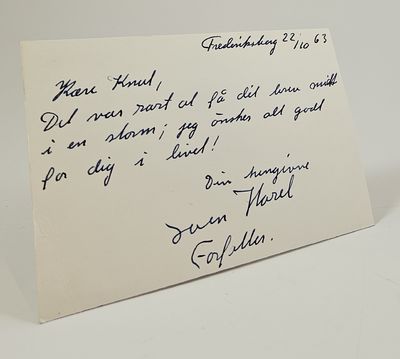 Frederiksberg 22/10 63
Kære Knud,
Det var rart at få dit brev midt
i en storm; jeg ønsker alt godt
for dig i livet!
Din hengivne
Sven Havel
Forfatter.